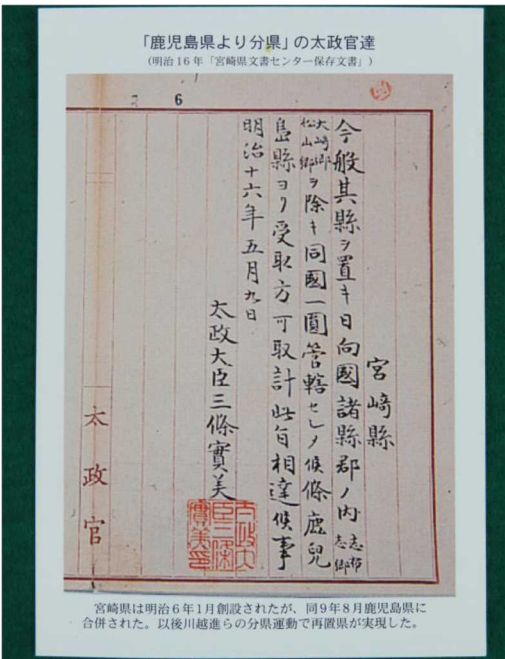 「鹿児島県より分県」の太政官達
(明治16年「宮崎県文書センター保存文書」)
6
宮﨑縣
今般其縣ヲ置キ日向國諸縣郡ノ内志布志郷
大﨑郷松山郷ヲ除キ同國一圓管轄セシメ候條鹿兒
島縣ヨリ受取方可取計此旨相達候事
明治十六年五月九日
太政大臣三條實美
太政大臣三條實美印
太政官
宮崎県は明治6年1月創設されたが、同9年8月鹿児島県に
合併された。以後川越進らの分県運動で再置県が実現した。